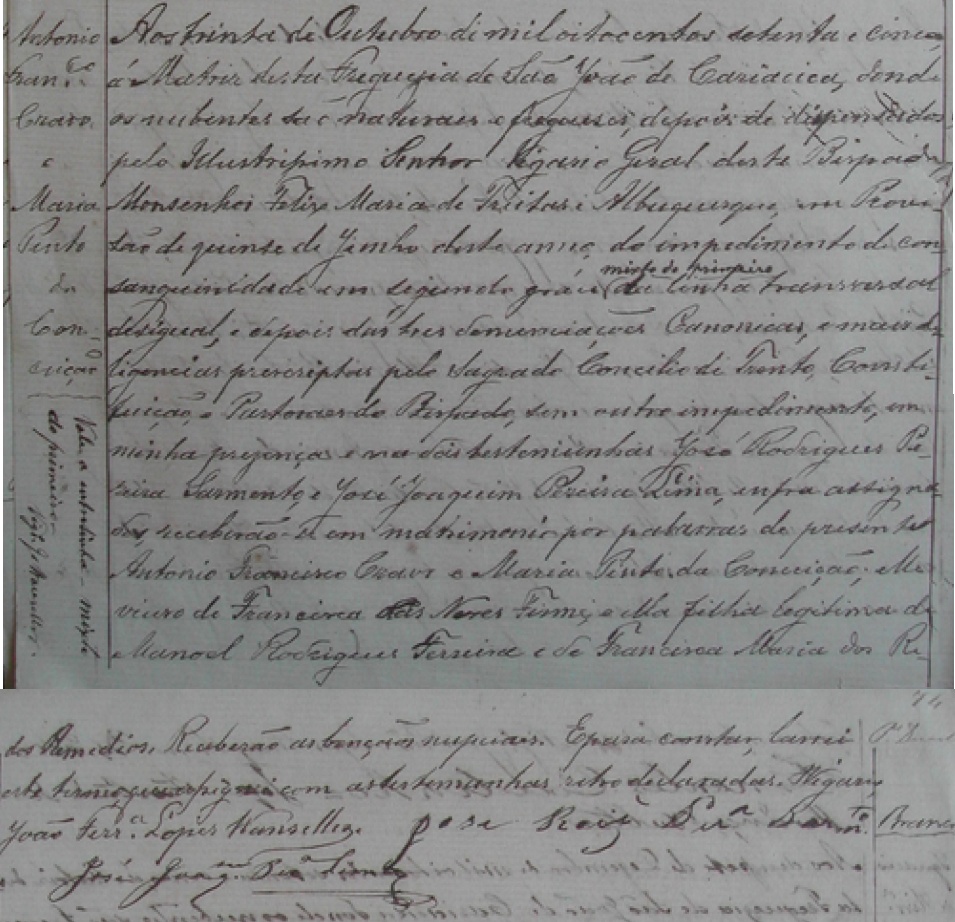 Antonio
Fran.co
Cravo.
e
Maria
Pinto
da
Con-
ceição
Vale a entrelinha - mixto
do primeiro -
Aos trinta de Outubro de mil oitocentos setenta e cinco,
á Matriz desta Freguezia de São João de Cariacica, donde
os nubentes são naturaes e freguezes, depois de dispensados
pelo Illustrissimo Senhor Vigario Geral deste Bispado
Monsenhor Felix Maria de Freitas e Albuquerque, em Provi-
são de quinse de Junho deste anno, do impedimento de con
mixto do primeiro
sanguinidade em segundo gráu da linha transversal
desigual, e depois das tres denunciações Canonicas, e mais di-
ligencias prescriptas pelo Sagrado Concilio de Trento, Consti-
tuição, e Pastoraes do Bispado, sem outro impedimento, em
minha presença e na das testemunhas José Rodrigues Pe-
reira Sarmento, e José Joaquim Pereira Lima, infra assigna-
dos, receberão-se em matrimonio por palavras de presente
Antonio Francisco Cravo e Maria Pinto da Conceição; elle
viuvo de Francisca das Neves Firme, e ella filha legitima de
Manoel Rodrigues Ferreira e de Francisca Maria dos Re-
dos Remedios. Receberão as bençãos nupciaes. E para constar, lavrei
este termo, que assignei com as testemunhas retro declaradas. O Vigario
João Ferr.a Lopes Wanselles.
José Roiz Per.a Sarm.to
José Joaq.m Per.a Lima